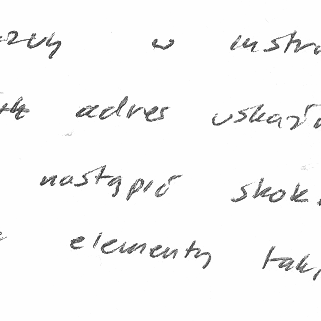 w instru
adres wskaźn
nastąpić skok
elementy tak,